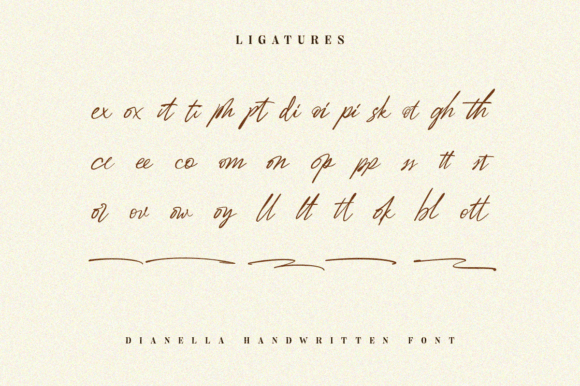 LIGATURES
ex ox it ti ph pt di oi pi sk ot gh th
cc ee co om on op pp ss tt st
or ov ow oy ll lt tl ok bl ott
DIANELLA HANDWRITTEN FONT